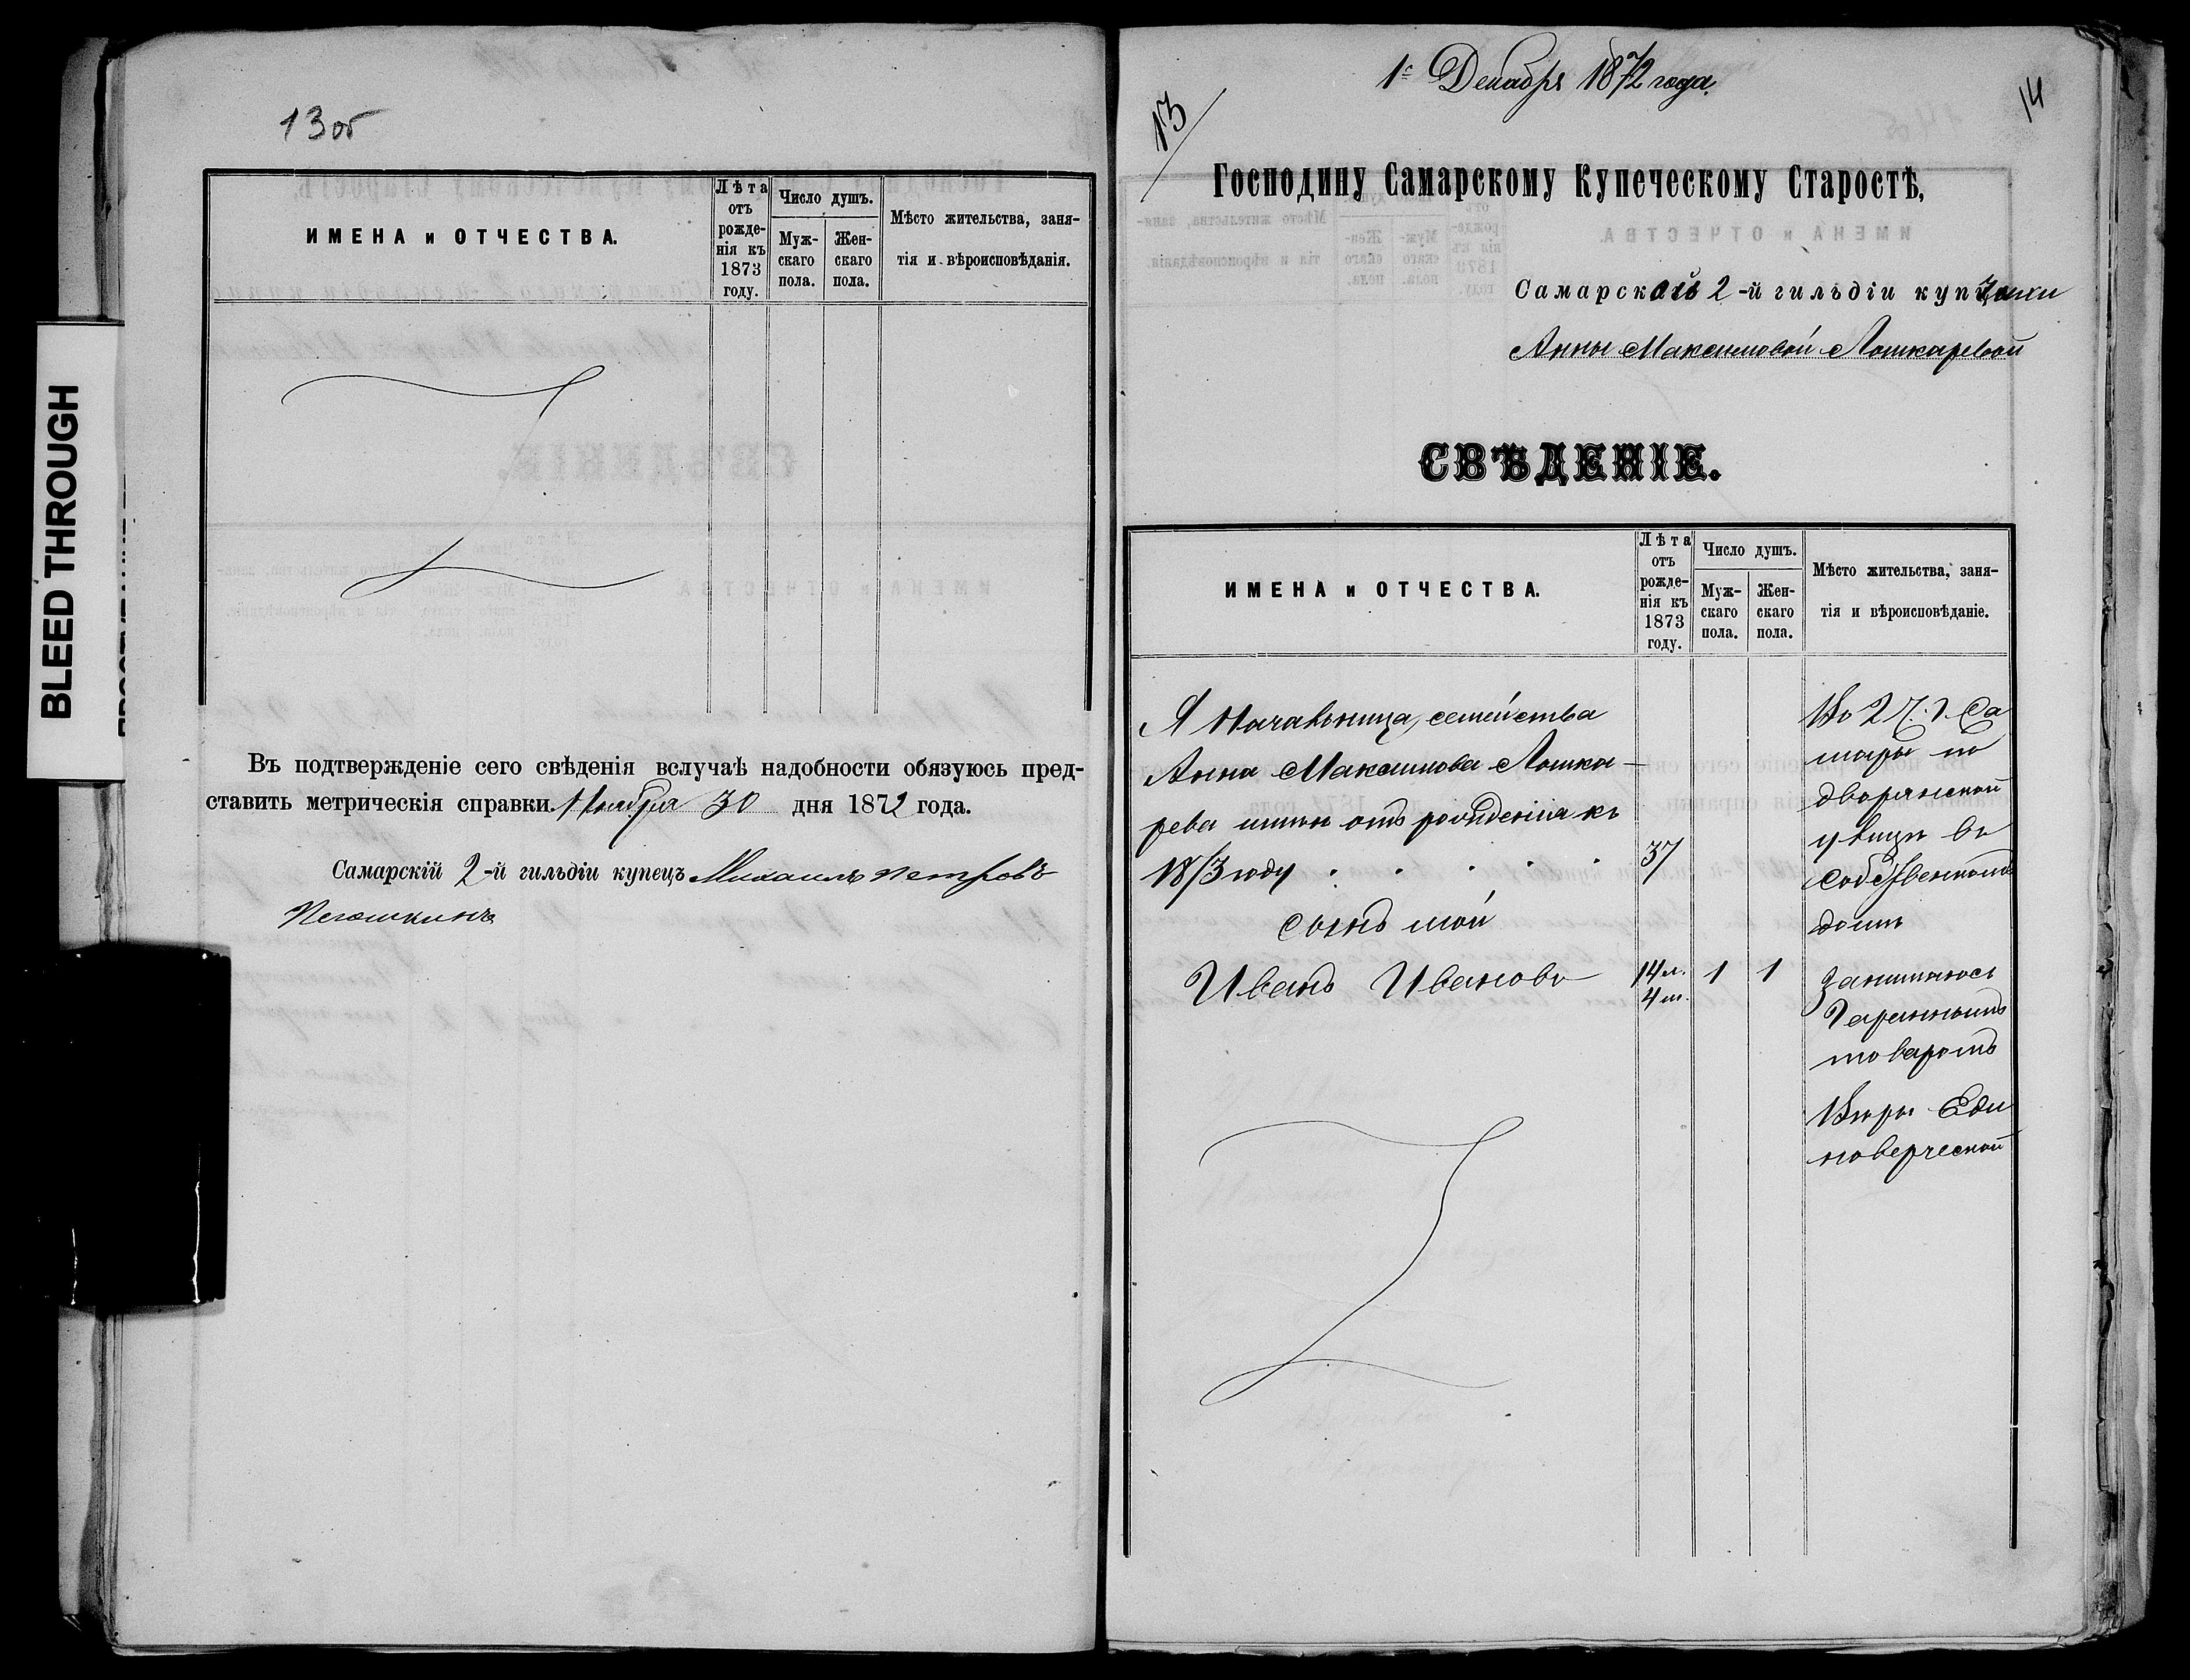 BLEED THROUGH
13 об
ИМЕНА и ОТЧЕСТВА.
Лѣта отъ рожде-нія къ 1873 году.
Число душъ.
Муж-скаго пола.
Жен-скаго пола.
Мѣсто жительства, заня-
тія и вѣроисповѣданія.
Въ подтвержденіе сего свѣденія вслучаѣ надобности обязуюсь пред-
ставить метрическія справки. Ноября 30 дня 1872 года.
Самарскій 2-й гильдіи купецъ Михаилъ Петровъ
1е Декабря 1872 года.
13
14
Господину Самарскому Купеческому Старостѣ,
Самарской 2-й гильдіи купчихи
Анны Максимовой Лошкаревой
СВѢДЕНІЕ.
ИМЕНА и ОТЧЕСТВА.
Лѣта отъ рожде-нія къ 1873 году.
Число душъ.
Муж-скаго пола.
Жен-скаго пола.
Мѣсто жительства, заня-
тія и вѣроисповѣданіе.
Я Начальница, семейства
Анна Максимова Лошка-
рева имѣю отъ рожденія къ
1873 году . . . . . 37
сынъ мой
Иванъ Ивановъ 14 л. 4 м. 1 1
Во 2 Ч. г. Са
мары по
дворянской
улицѣ въ
собственномъ
домѣ
Занимаюсь
товаромъ
Вѣры Еди
новерческой